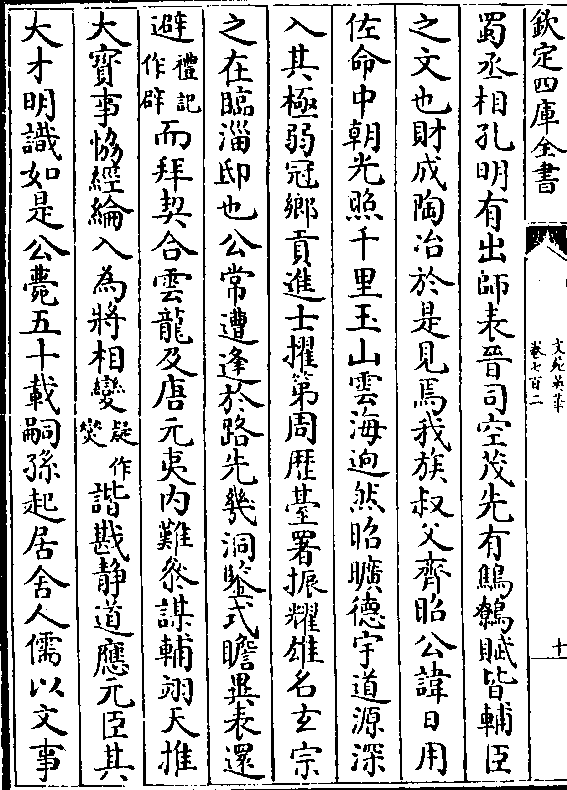 欽定四庫全書
文苑英華
卷七百二
十
蜀丞相孔明有出師表晉司空茂先有鷦鷯賦皆輔臣
之文也財成陶冶於是見焉我族叔父齊昭公諱日用
佐命中朝光照千里玉山雲海逈然昭曠德宇道源深
入其極弱冠鄉貢進士擢第周歷臺署振耀雄名玄宗
之在臨淄邸也公常遭逢於路先幾洞鑒式瞻異表還
避禮記作辟而拜契合雲龍及唐元夷內難叅謀輔翊天推
大寳事恊經綸入為將相變疑作爕諧戡静道應元臣其
大才明識如是公薨五十載嗣孫起居舍人儒以文事